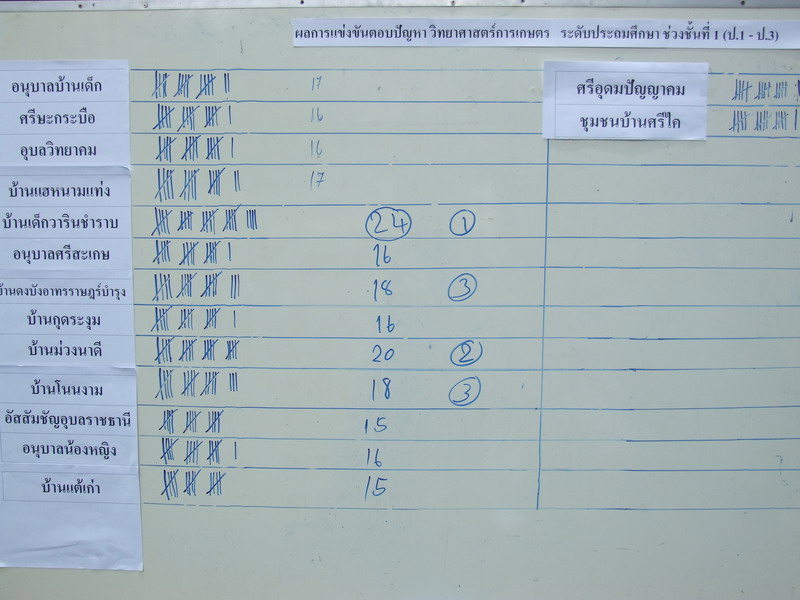 ผลการแข่งขันตอบปัญหา วิทยาศาสตร์การเกษตร ระดับประถมศึกษา ช่วงชั้นที่ 1 (ป.1 - ป.3)
อนุบาลบ้านเด็ก 17
ศรีษะกระบือ 16
อุบลวิทยาคม 16
บ้านแฮหนามแท่ง 17
บ้านเด็กวารินชำราบ 24 1
อนุบาลศรีสะเกษ 16
บ้านดงบังอาทรราษฎร์บำรุง 18 3
บ้านกุดระงุม 16
บ้านม่วงนาดี 20 2
บ้านโนนงาม 18 3
อัสสัมชัญอุบลราชธานี 15
อนุบาลน้องหญิง 16
บ้านแต้เก่า 15
ศรีอุดมปัญญาคม
ชุมชนบ้านศรีไค